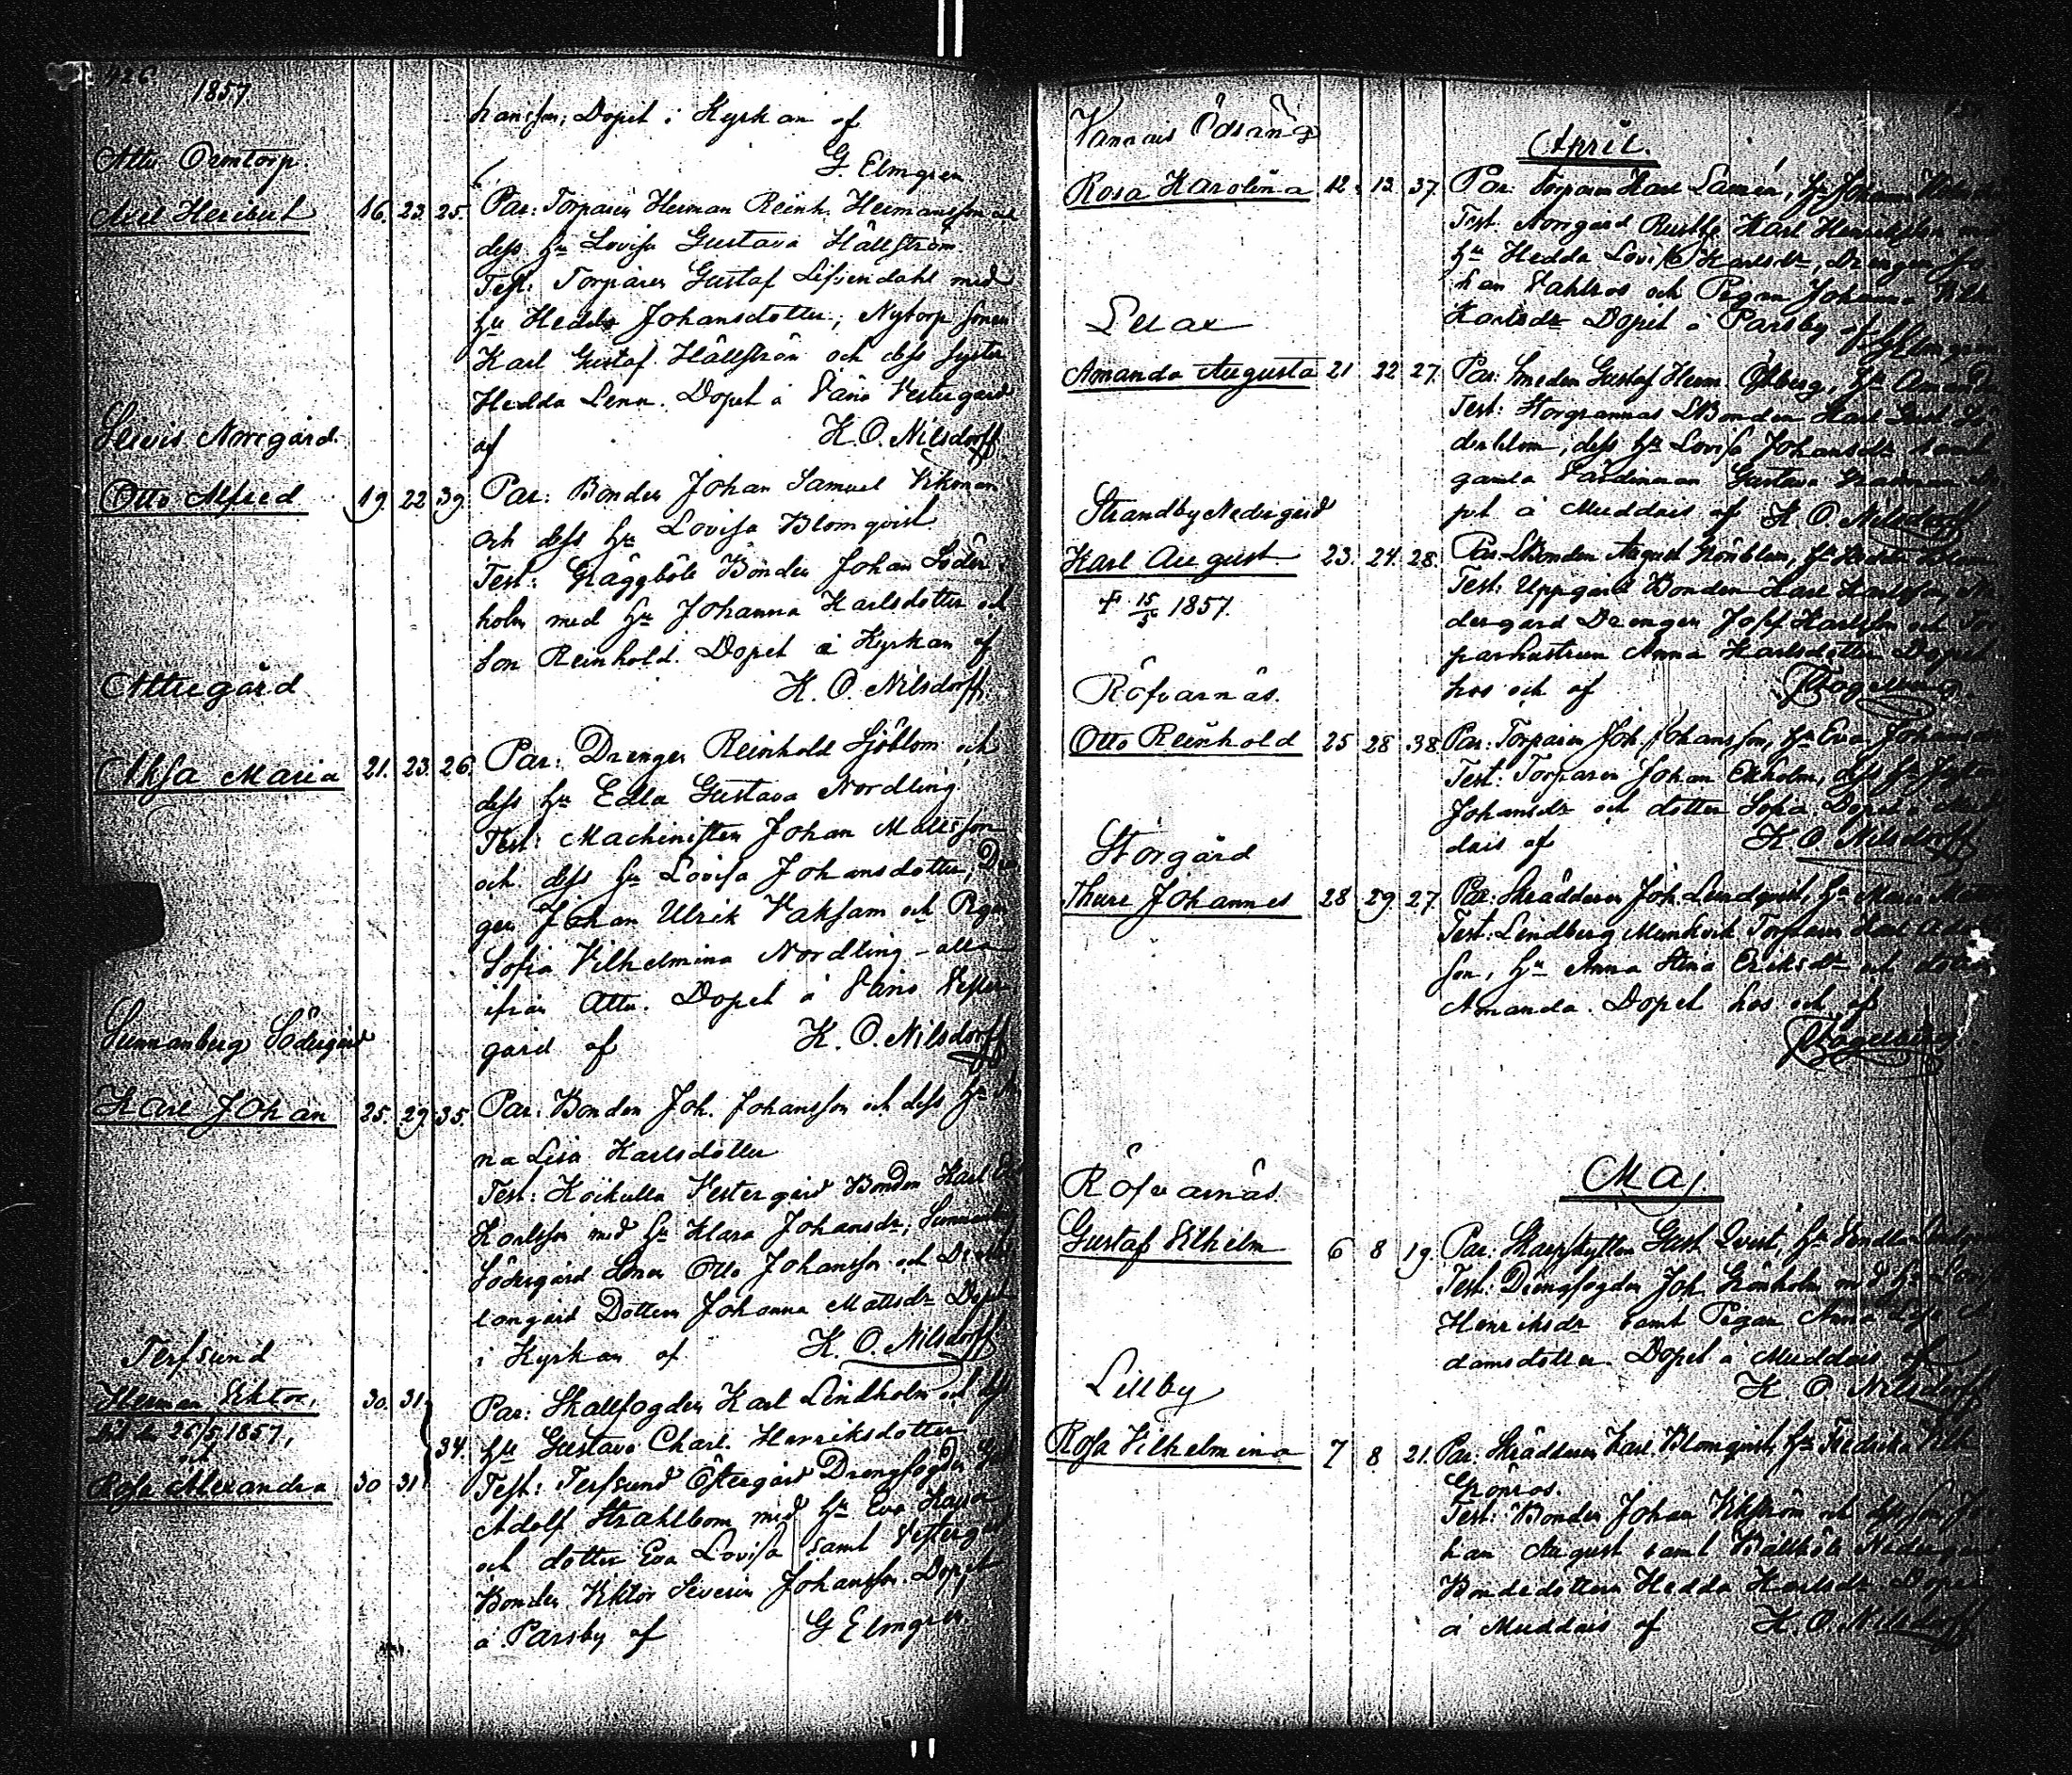 1857
hansson; Dopet i Kyrkan af
G. Elmgren
Attu Ormtorp.
Axel Heribert 16. 23. 25. Par: Torparen Herman Reinh. Hermansson och
dess hu Lovisa Gustava Hällström
Test: Torparen Gustaf Lifsendahl med
hu Hedda Johansdotter; Nytorp sonen
Karl Gustaf Hällström och dess syster
Hedda Lena. Dopet å Vånå Vestergård
af K. O. Nilsdorff
Norrgård.
Otto Alfred 19. 22 39. Par: Bonden Johan Samuel Vikman
och dess hu Lovisa Blomqvist
Test: Gräggböle Bonden Johan Söder-
holm med hu Johanna Karlsdotter och
Son Reinhold. Dopet å Kyrkan af
K. O. Nilsdorff
Attugård
Aksa Maria 21. 23. 26. Par: Drengen Reinhold Sjöblom och
dess hu Edla Gustava Nordling.
Test: Machinisten Johan Mattsson
och dess hu Lovisa Johansdotter, Dren
gen Johan Ulrik Vaksam och Pigan
Sofia Vilhelmina Nordling - alla
ifrån Attu. Dopet å Vånå Vester
gård af K. O. Nilsdorff
Sunnanberg Södergård
Karl Johan 25. 29. 35. Par: Bonden Joh. Johansson och dess hu
na Lisa Karlsdotter
Test: Koikulla Vestergård Bonden Karl
Karlsson med hu Klara Johansdr, Sunnanberg
Södergård Sonen Otto Johansson och
Dottern Johanna Mattsdr Dopet
i Kyrkan af K. O. Nilsdorff
Terfsund
Herman Viktor, 30. 31. Par: Skallfogden Karl Lindholm och dess
26/5 1857,
och 34. hu Gustava Charl. Henriksdotter
Rosa Alexandra 30 31 Test: Terfsund Östergård Drengfogden
Adolf Strahlbom med hu Eva Kajsa
och dotter Eva Lovisa samt Vestergård
Bonden Viktor Severin Johansson. Dopet
å Parsby af G Elmgren.
Vannais Ödsäng
April.
Rosa Karolina 12. 13. 37. Par: Torparen Karl Lamén, hu Johanna
Test. Norrgård Rusth. Karl Henriksson med
hu Hedda Lovisa Karlsdr, Drengen Jo-
han Vahlros och Pigan Johanna Vilh
Karlsdr Dopet å Parsby af
Lerax
Amanda Augusta 21 22 27. Par: Smeden Gustaf Herm. Öhberg, hu Amanda
Test: Storgrannas LBonden Karl Gust. Sö-
derblom, dess hu Lovisa Johansdr samt
gamla Gustava
pet å Muddais af K O Nilsdorff
Strandby Nedergård
Karl August 23. 24. 28. Par: LBonden August Grönblom, hu Hedda
† 15/5 1857. Test: Uppgård Bonden Karl Karlsson, Ne
dergård Drengen Josef Karlsson och Tor
parhustrun Anna Karlsdotter Dopet
hos och af Fogelberg
Röfvarnäs.
Otto Reinhold 25 28 38. Par: Torparen Joh. Johansson, hu Eva Johansdr
Test: Torparen Johan Ekholm, dess hu
Johansdr och dotter Sofia Dopet å Mud
dais af K O Nilsdorff
Storgård
Thure Johannes 28 29 27. Par: Skräddaren Joh. Lindqvist, hu Maria
Test: Lindberg Munkvik Torparen Karl
son, hu Anna Stina Eriksdr och dotter
Amanda. Dopet hos och af
Fogelberg
Maj.
Röfvarnäs.
Gustaf Vilhelm 6 8 19. Par: Skarpskytten Gust Qvist, hu Vendla
Test: Drengfogden Joh. Grönholm med hu
Henriksdr samt Pigan Anna A
damsdotter. Dopet å Muddais af
K O Nilsdorff
Lillby
Rosa Vilhelmina 7 8 21. Par: Skräddaren Karl Blomqvist, hu Fredrika Vilh
Grönros.
Test: Bonden Johan Vikström och dess son Jo
han August samt Nedergård
Bondedottern Hedda Karlsdr. Dopet
å Muddais af K. O. Nilsdorff